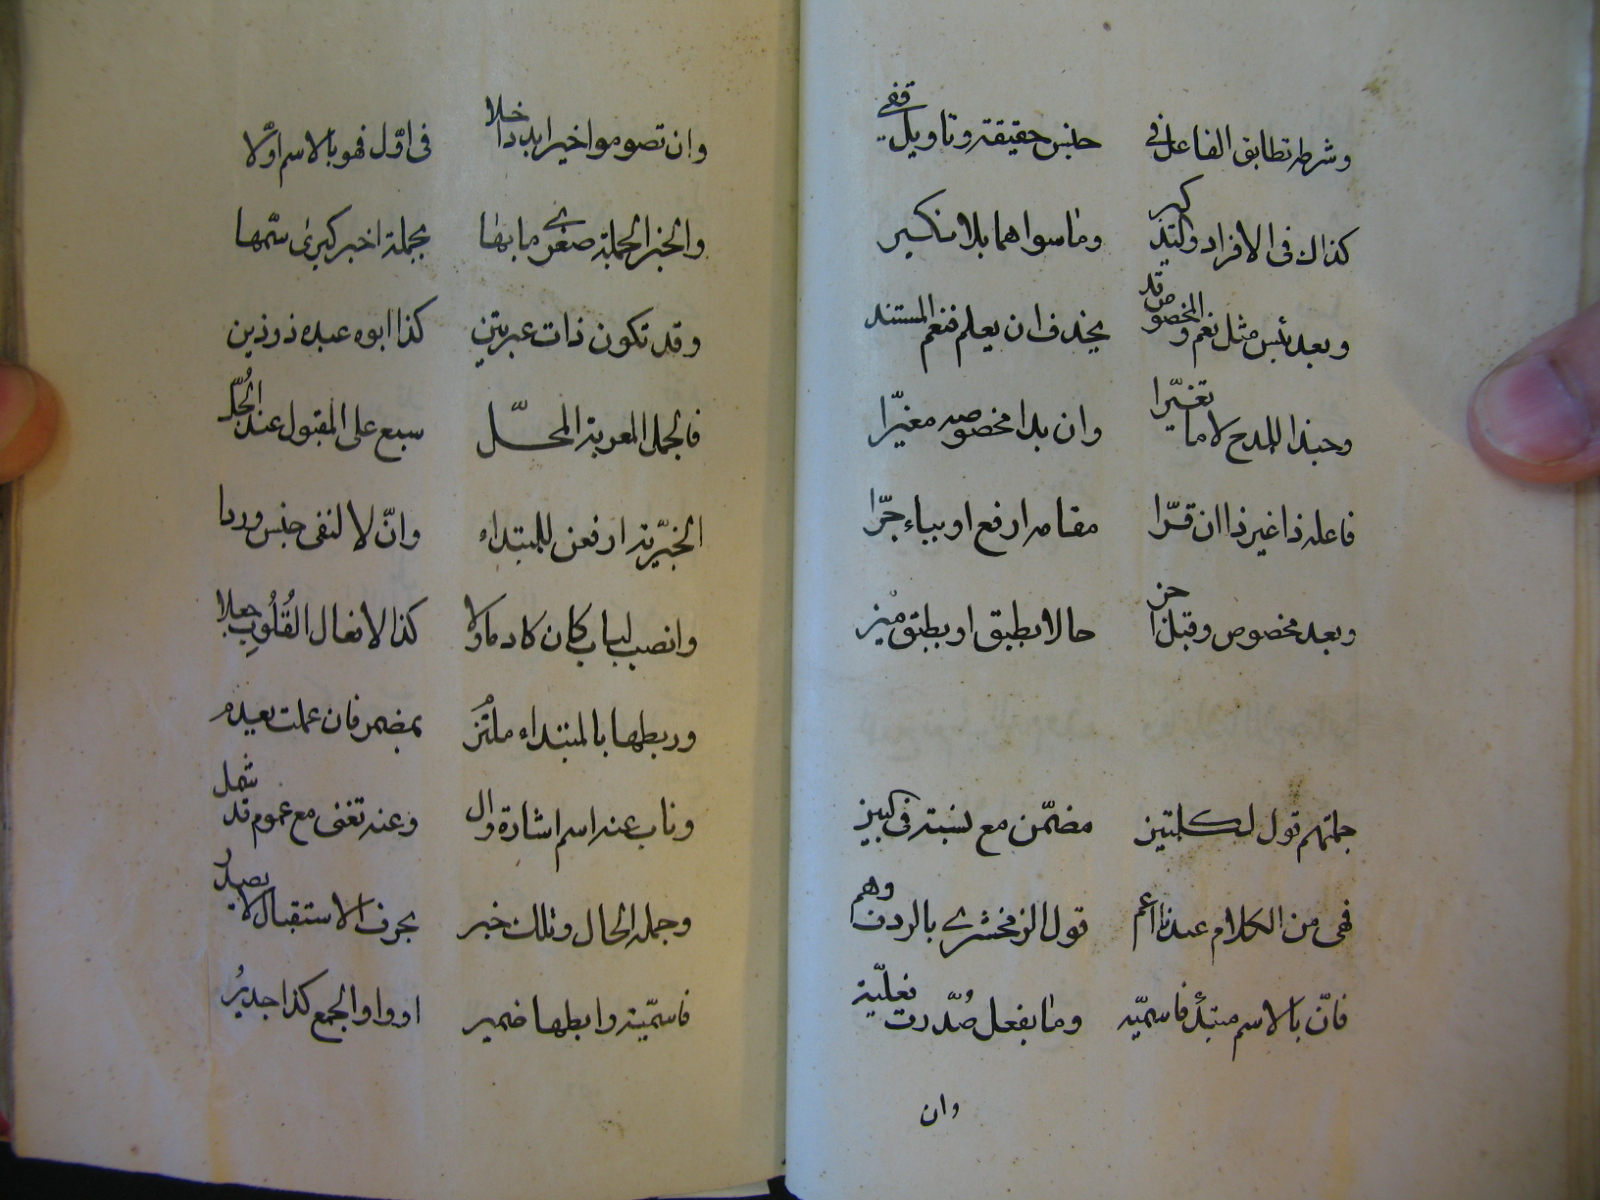 وشرطه تطابق الفاعل في جنس حقيقة وتاويل قفي
كذاك في الافراد وما سواهما بلا نكير
وبعد بئس مثل نعم والمخصوص قد يحذف ان يعلم فنعم المستند
وحبذا للمدح لاما تغيّرا وان بدا مخصوصه مغيّرا
فاعله ذا غير ذا ان قرّا مقامه ارفع او بباء جرّا
وبعد مخصوص وقبل حالا يطبق او يطبق
جملتهم قول لكلمتين مضمّن مع نسبة في
فهى من الكلام عندنا اعم قول الزمخشرى بالردف وهم
فانّ بالاسم مبتدأ فاسميّه وما بفعل صُدّرت فعليّة
وان
وان تصوموا خير ابدا دخلا في اوّل فهو بالاسم اوّلا
والخبر الجملة صغرى ما بها بجملة اخبر كبرى سمّها
وقد تكون ذات كذا ابوه عبده ذو ذين
فالجمل المعربة المحلّ سبع على المقبول عند الجُلّ
الخبريّة ارفعن للمبتداء وانّ لا لنفى جنس وردا
وانصب لباب كان كاد ما ولا كذا لافعال القُلُوبِ جعلا
وربطها بالمبتداء ملتُزم بمضمر فان عملت
وناب عنه اسم اشارة وال وعنه تغنى مع عموم قد شمل
وجملة الحال وتلك خبر بحرف الاستقبال لا
فاسميّة رابطها ضمير او واو الجمع كذا جديرُ